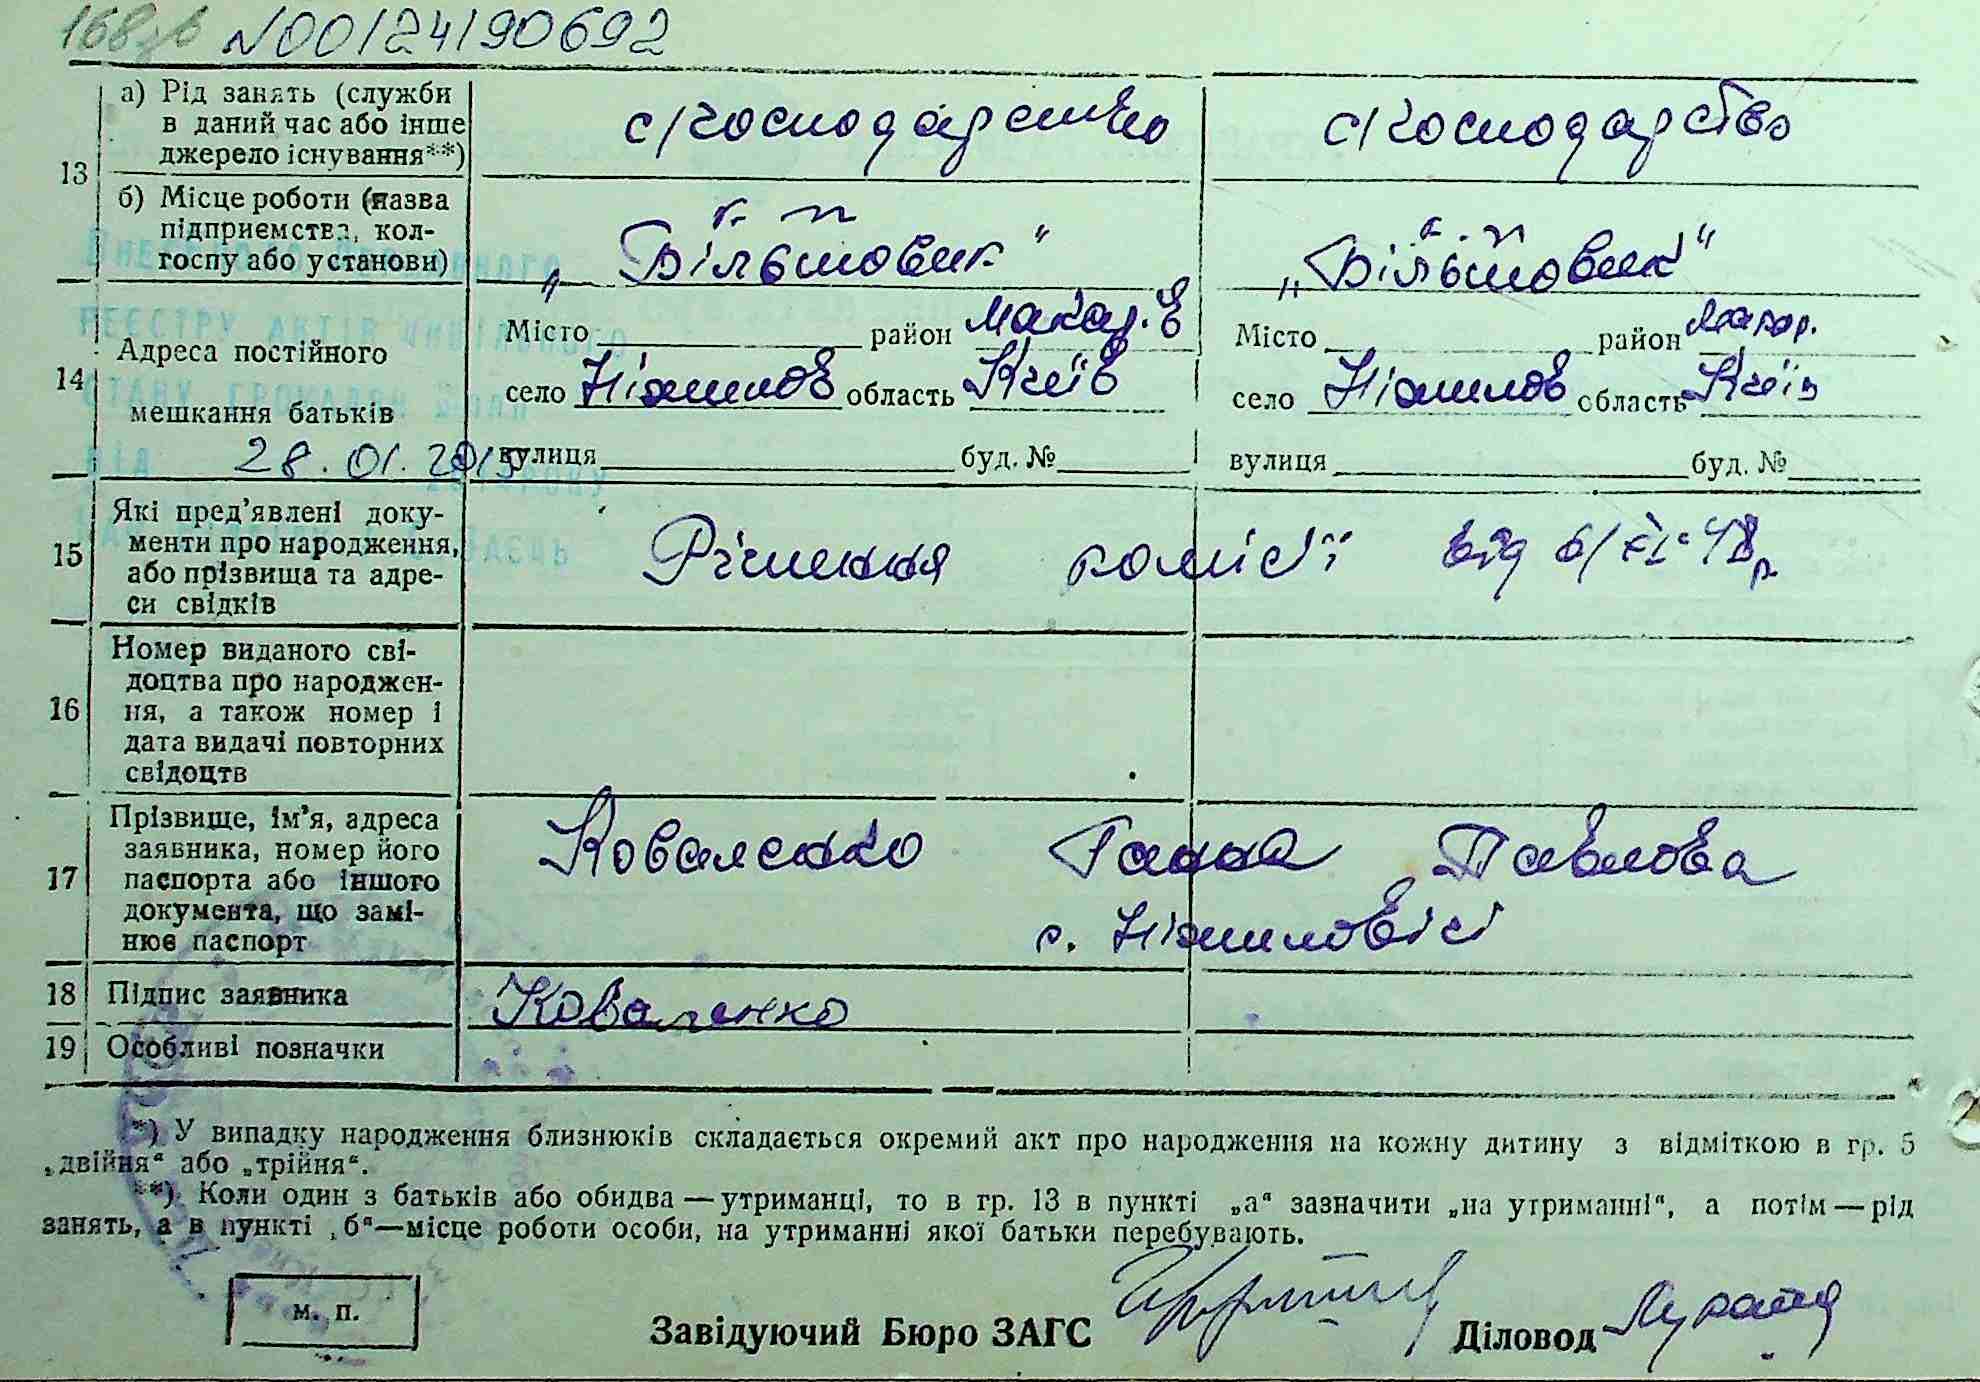 168зв №00124190692
13
а) Рід занять (служби
в даний час або інше
джерело існування**)
с/господарство
с/господарство
б) Місце роботи (назва
підприємства, кол-
госпу або установи)
к-п
„Більшовик“
к-п
„Більшовик“
14
Адреса постійного
мешкання батьків
Місто район Макар.в
село Ніжилов область Київ
вулиця буд. №
Місто район Макар.
село Ніжилов область Київ
вулиця буд. №
РЕЄСТРУ АКТІВ ЦИВІЛЬНОГО
СТАНУ ГРОМАДЯН
від 28.01.2015 РОКУ
15
Які пред’явлені доку-
менти про народження,
або прізвища та адре-
си свідків
Рішення комісії від 6/ 48р.
16
Номер виданого сві-
доцтва про народжен-
ня, а також номер і
дата видачі повторних
свідоцтв
17
Прізвище, ім’я, адреса
заявника, номер його
паспорта або іншого
документа, що замі-
нює паспорт
Коваленко Ганна Павлова
с. Ніжиловісі
18
Підпис заявника
Коваленко
19
Особливі позначки
*) У випадку народження близнюків складається окремий акт про народження на кожну дитину з відміткою в гр. 5
„двійня“ або „трійня“.
**) Коли один з батьків або обидва — утриманці, то в гр. 13 в пункті „а“ зазначити „на утриманні“, а потім — рід
занять, а в пункті „б“—місце роботи особи, на утриманні якої батьки перебувають.
м. п.
Завідуючий Бюро ЗАГС
Діловод